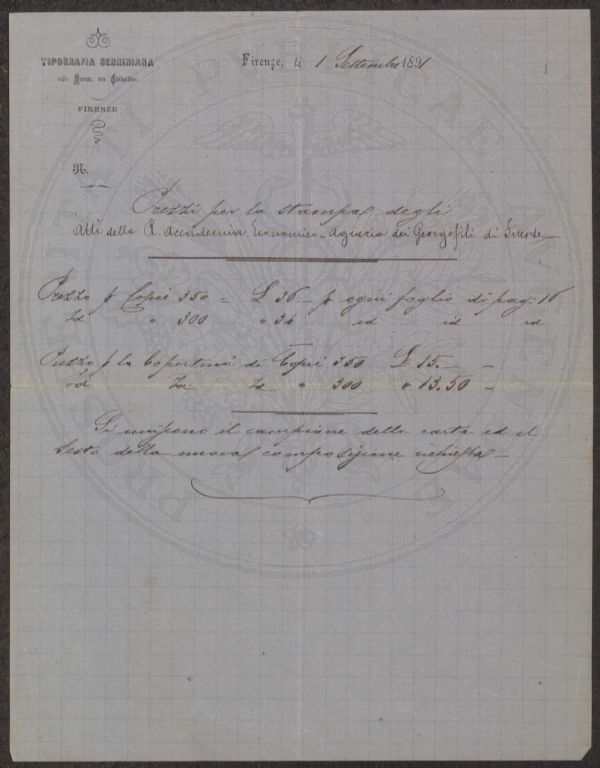 TIPOGRAFIA CENNINIANA
nelle Murate, via Ghibellina
FIRENZE
Firenze, li 1 Settembre 1891
1
N.
Prezzi per la stampa degli
Atti della R. Accademia Economico-Agraria dei Georgofili di Firenze
Prezzo p Copie 350 = £ 36 - p ogni foglio di pag: 16
Id " 300 " 34 id id id
Prezzo p la Copertina di Copie 350 £ 15. - -
id Id Id " 300 " 13.50 -
Si uniscono il campione della carta ed il
testo della nuova composizione richiesta -
PROSPERITATI PUBLICAE